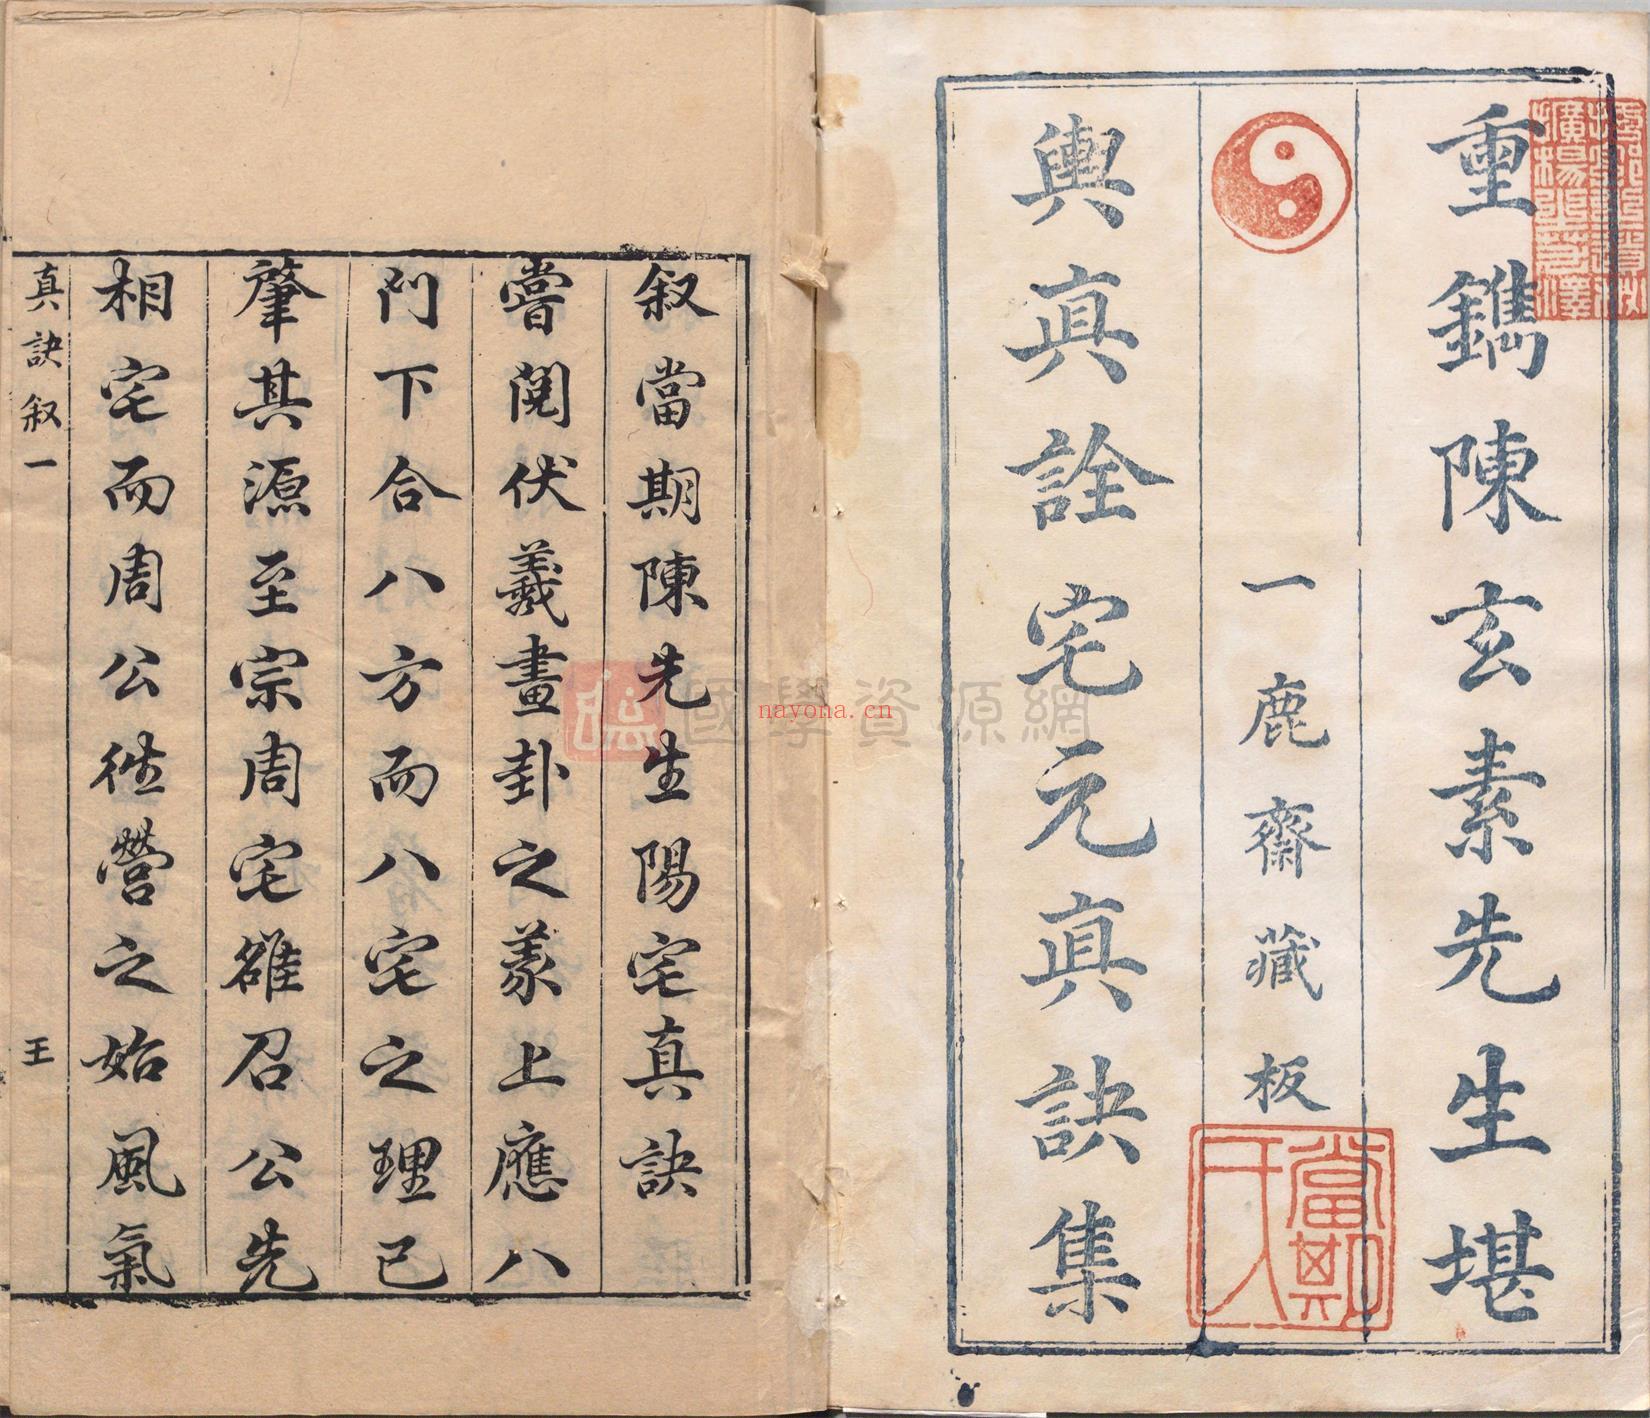 重鐫陳玄素先生堪
一鹿齋藏板
輿真詮宅元真訣集
當期
叙當期陳先生陽宅真訣
嘗閱伏羲畫卦之義上應八
門下合八方而八宅之理已
肇其源至宗周宅雒召公先
相宅而周公徃營之始風氣
真訣叙一 王
國學資源網
nayona.cn